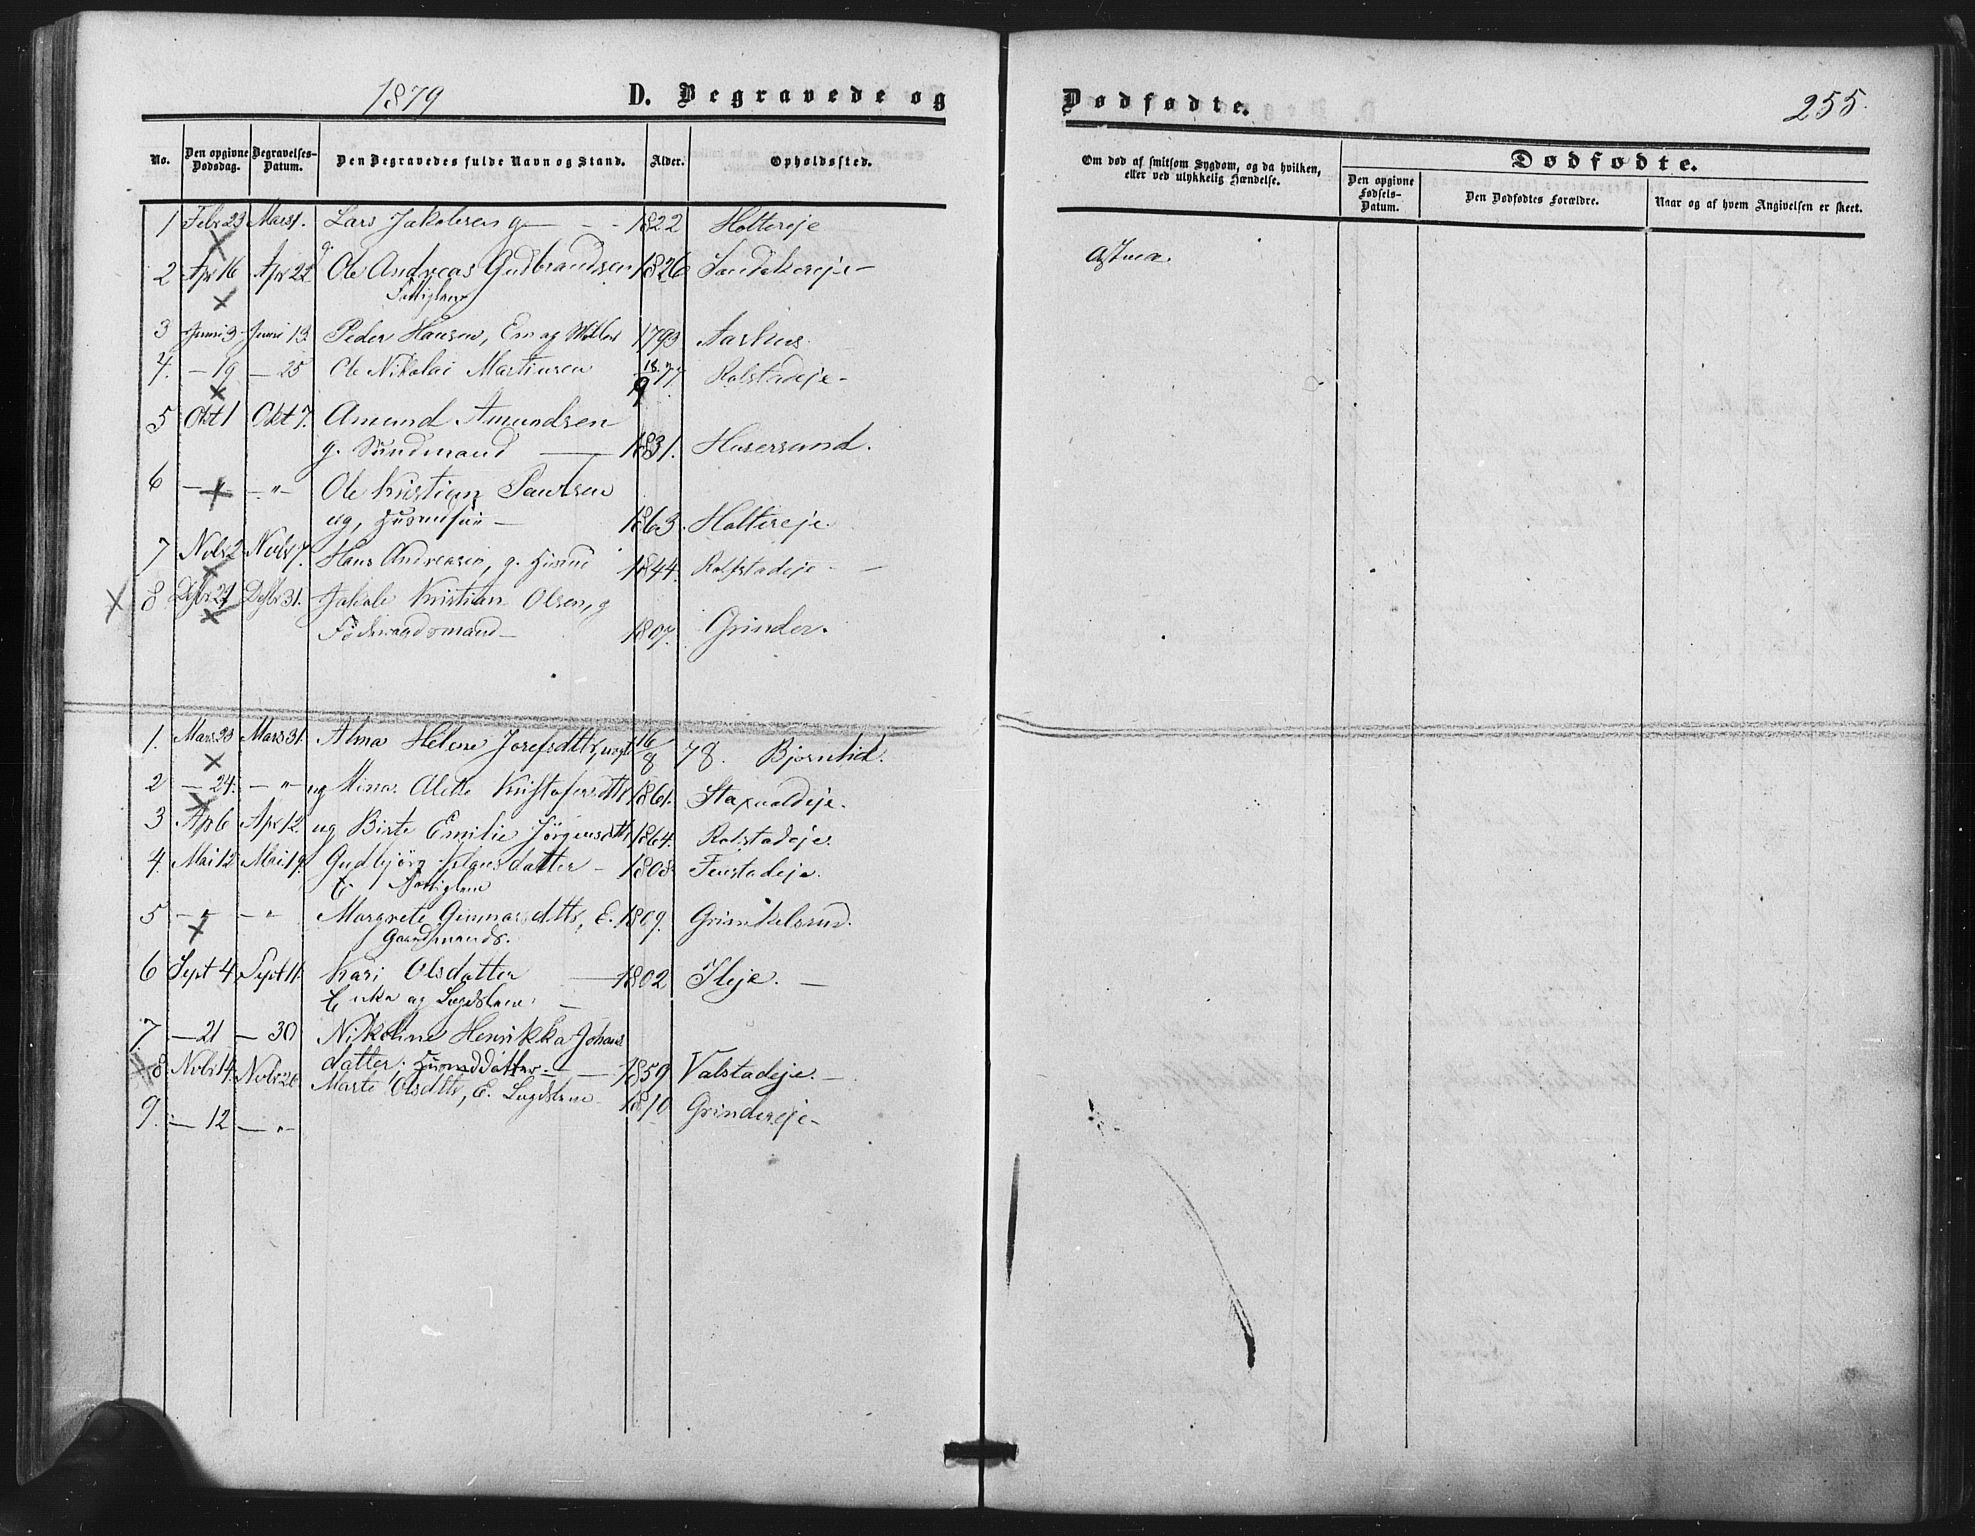 1879 D. Begravede og
Dødfødte. 255.
No. Den opgivne Dødsdag. Begravelses-Datum. Den Begravedes fulde Navn og Stand. Alder. Opholdssted.
Om død af smitsom Sygdom, og da hvilken, eller ved ulykkelig Hændelse.
Dødfødte.
Den opgivne Fødsels-Datum. Den Dødfødtes Forældre. Naar og af hvem Angivelsen er skeet.
1 Febr 23 Mars 1. Lars Jakobsen g — 1822 Holtereje
2 Apr 16 Apr 22 g. Ole Andreas Gudbrandsen 1826 Sandakereje — Astma.
Fattiglem
3 Juni 3 Juni 13. Peder Hansen, Em og 1793 Aarhus
4. — 19 — 25 Ole Nikolai Martinsen 18 77. Rolstadeje —
9
5 Okt 1 Okt 7. Amund Amundsen
g. Sundmand — 1831. Husersund.
6 — " — — " — Ole Kristian Paulsen
ug, — 1863. Holtereje.
7 Nvbr 2 Nvbr 7. Hans Andreasen, g. Husmd 1844. Rolfstadeje —
X 8 Dsbr 24 Dsbr 31. Jakob Kristian Olsen, g
Föderaadsmand — 1807. Grinder.
1. Mars 23 Mars 31. Alma Helene Josefsdttr, 16/8 78. Bjørnlid.
2 — 24. — " — ug Mina Alette Kristofersdttr 1861.
3 Ap 6 Apr 12. ug Birte Emilie Jörgensdttr 1864. Rolstadeje.
4. Mai 12 Mai 19. Gudbjörg datter — 1808 Fenstadeje.
E Fattiglem
5 — " — — " Margrete Gunnarsdttr, E. 1809. Grinkelsrud.
Gaardmands.
6 Sept 4. Sept 11. Kari Olsdatter — 1802
Enke og Lægdslem —
7 — 21 — 30 Nikoline Henrikka Johans
datter. Husmddatter — 1859 Valstadeje. —
8 Nvbr 14. Nvbr 20 Marte Olsdttr, E. Lægdslem 1810 Grindereje —
9. — 12 — " —